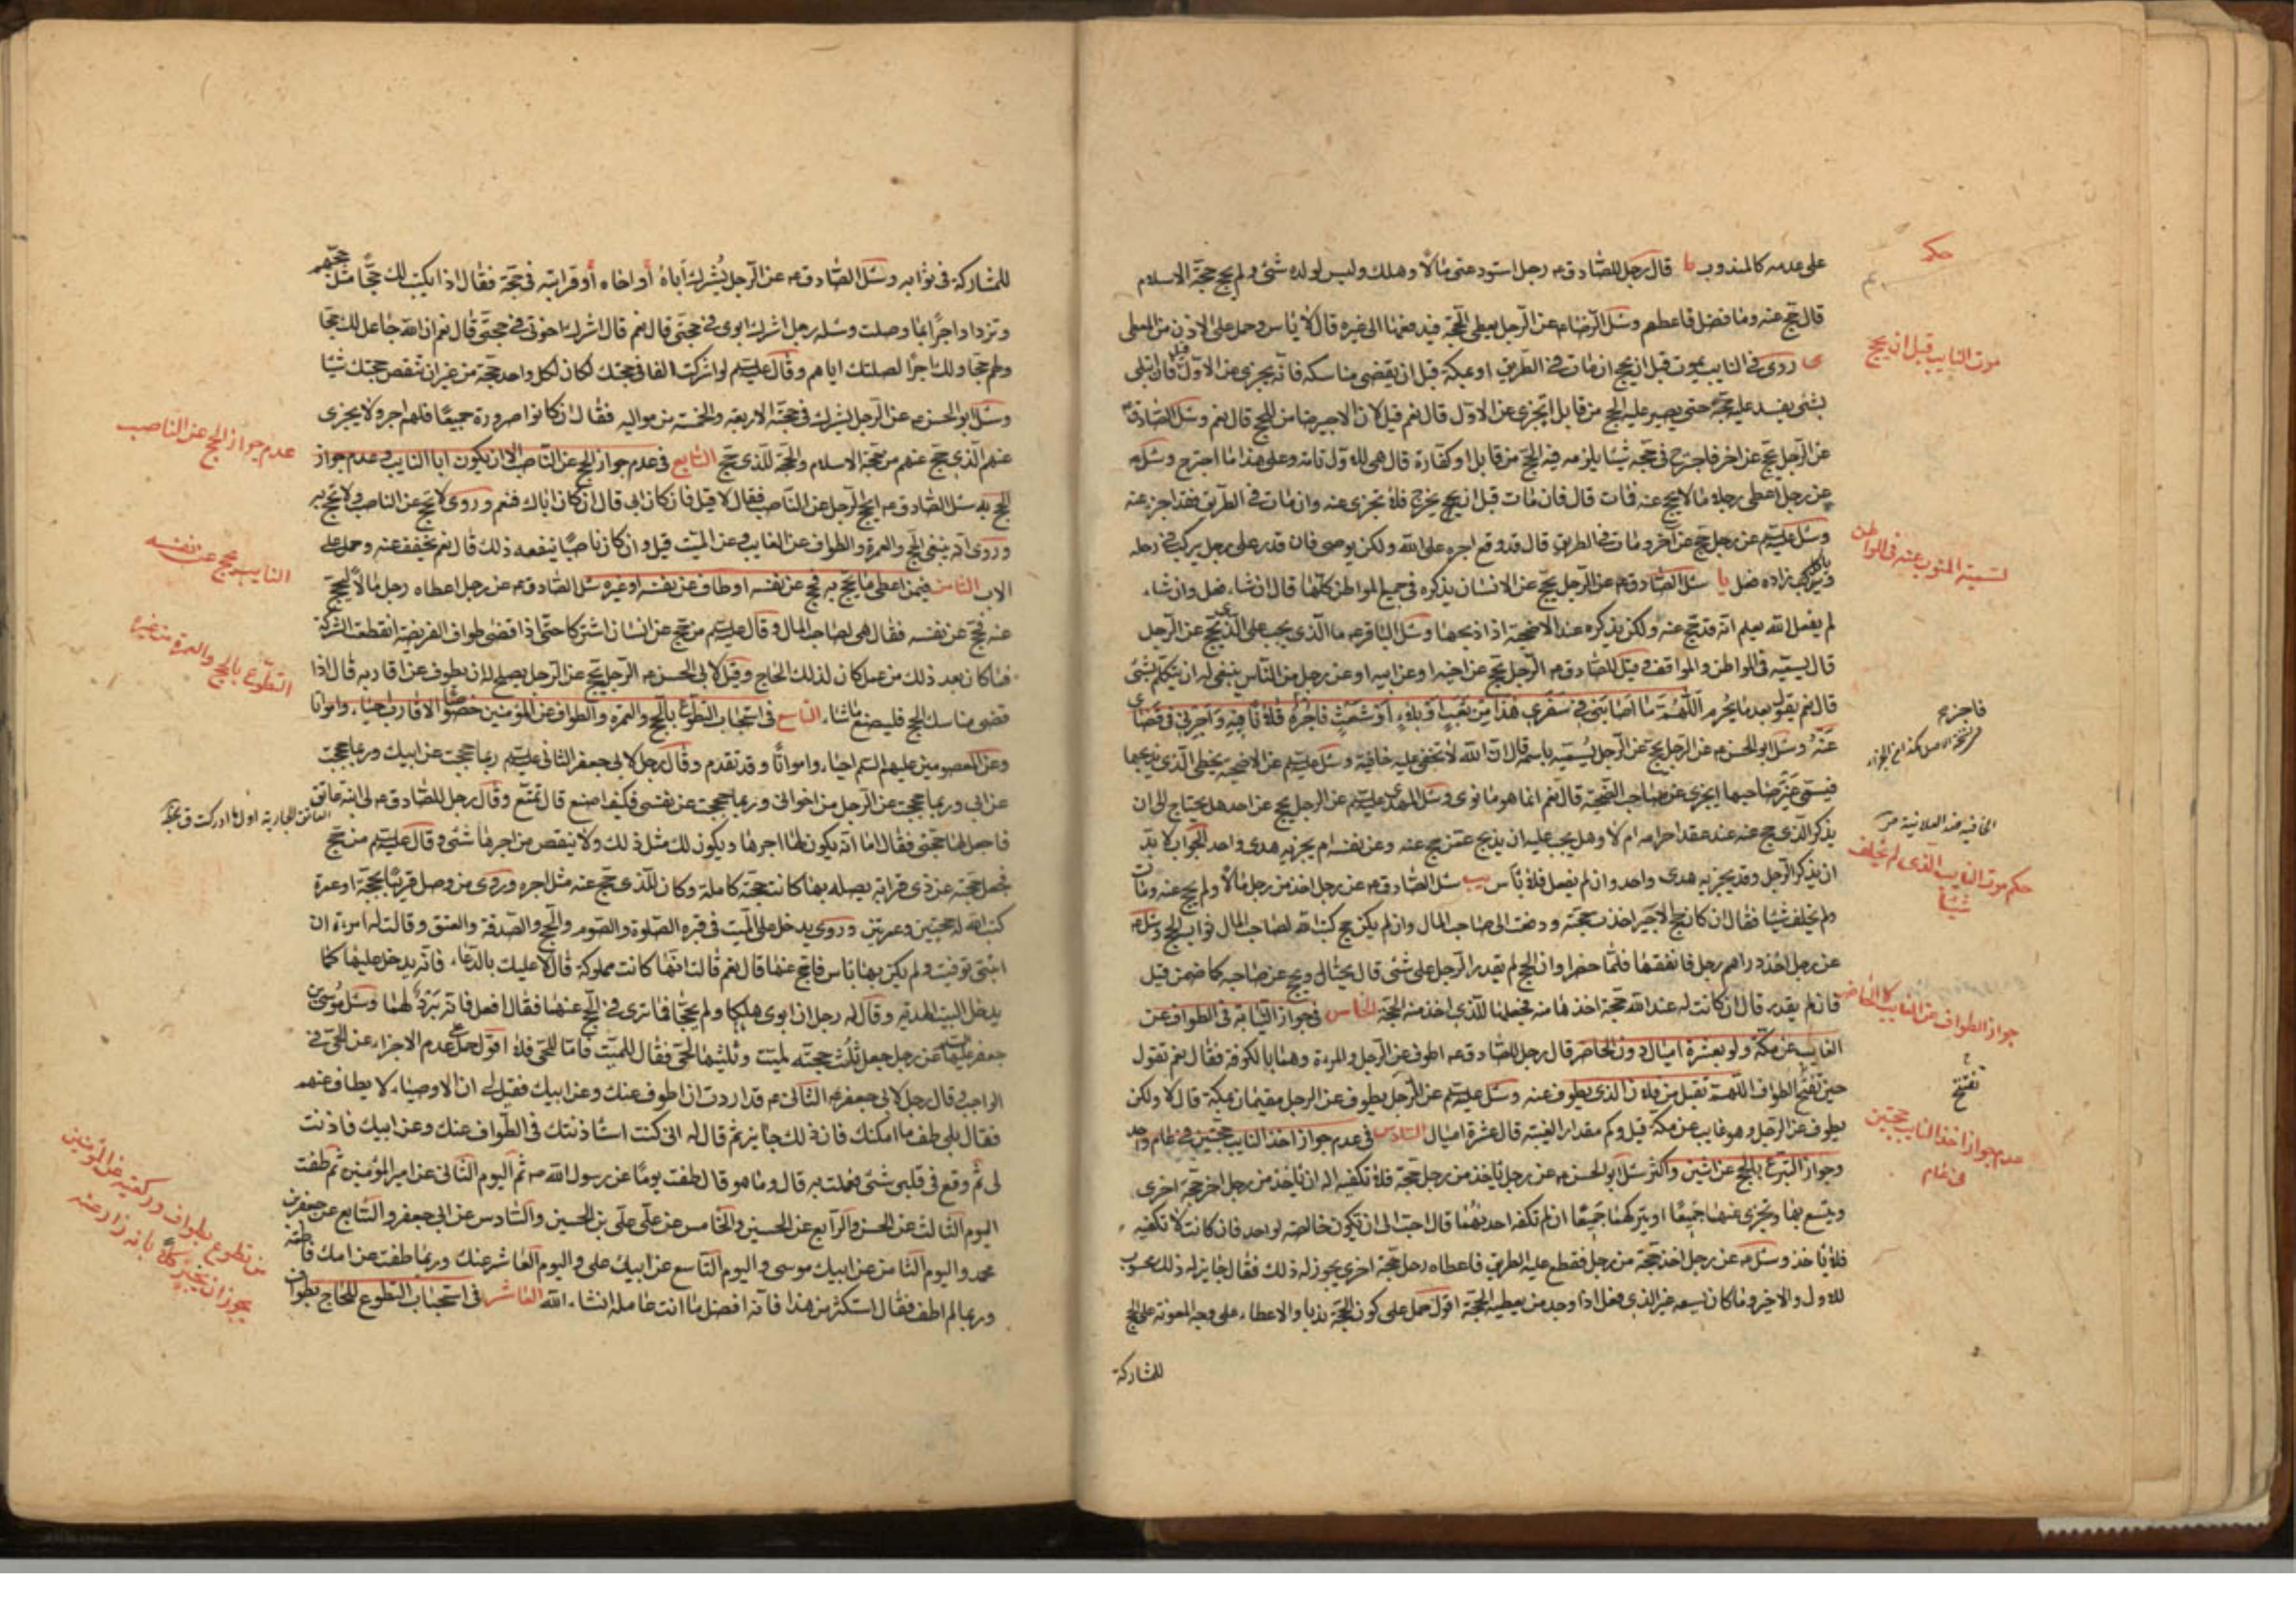 على عدمه كالمندوب يا قال رجل للصادق ع رجل استودعنى مالا وهلك وليس لولده شئ ولم يحج حجة الاسلام
قال حج عنه وما فضل فاعطهم وسئل الرضا ع عن الرجل يعطى الحجة فيدفعها الى غيره قال لا باس وحمل على الاذن من المعطى
روى فى النايب يموت قبل ان يحج ان مات فى الطريق او بمكة قبل ان يقضى مناسكه فانه يجزى عن الاول قيل فان ابتلى
بشئ يفسد عليه حجه حتى يصير عليه الحج من قابل ايجزى عن الاول قال نعم قيل لان الاجير ضامن للحج قال نعم وسئل الصادق ع
عن الرجل يحج عن اخر فاجترح فى حجه شيئا يلزمه فيه الحج من قابل او كفارة قال هى للاول تامة وعلى هذا ما اجترح وسئل ع
عن رجل اعطى رجلا ما لا يحج عنه فمات قال فان مات قبل ان يخرج فلا تجزى عنه وان مات فى الطريق فقد اجزء عنه
وسئل عليه السلم عن رجل حج عن آخر ومات فى الطريق قال قد وقع اجره على الله ولكن يوصى فان قدر على رجل يركب فى رحله
وياكل زاده فعل يا سئل الصادق ع عن الرجل يحج عن الانسان يذكره فى جميع المواطن كلها قال ان شاء فعل وان شاء
لم يفعل الله يعلم انه قد حج عنه ولكن يذكره عند الاضحية اذا ذبحها وسئل الباقر ع ما الذى يجب على الذى يحج عن الرجل
قال يسميه فى المواطن والمواقف وقيل للصادق ع الرجل يحج عن اخيه او عن ابيه او عن رجل من الناس ينبغى له ان يتكلم بشئ
قال نعم يقول بعد ما يحرم اللهم ما اصابنى فى سفرى هذا من تعب او بلاء او شعث فاجر فلانا فيه واجرنى فى قضائى
عنه وسئل ابو الحسن ع عن الرجل يحج عن الرجل يسميه باسمه قال ان الله لا تخفى عليه خافية وسئل عليه السلم عن الاضحية يخطى الذى يذبحها
فيسمى غير صاحبها ايجزى عن صاحب الضحية قال نعم انما هو ما نوى وسئل المهدى عليه السلم عن الرجل يحج عن احد هل يحتاج الى ان
يذكر الذى حج عنه عند عقد احرامه ام لا وهل يجب عليه ان يذبح عمن حج عنه وعن نفسه ام يجزيه هدى واحد الجواب لا بد
ان يذكر الرجل وقد يجزيه هدى واحد وان لم يفعل فلا باس يب سئل الصادق ع عن رجل اخذ من رجل مالا ولم يحج عنه ومات
ولم يخلف شيئا فقال ان كان حج الاجير اخذت حجته ودفعت الى صاحب المال وان لم يكن حج كتب الله لصاحب المال ثواب الحج وسئل ع
عن رجل اخذ دراهم رجل فانفقها فلما حضر اوان الحج لم يقدر الرجل على شئ قال يحتال ويحج عن صاحبه كما ضمن قيل
فان لم يقدر قال ان كانت له عند الله حجة اخذها منه فجعلها للذى اخذ منه الحجة الخامس فى جواز النيابة فى الطواف عن
الغايب عن مكة ولو بعشرة اميال دون الحاضر قال رجل للصادق ع اطوف عن الرجل والمرءة وهما بالكوفة فقال نعم تقول
حين تفتح الطواف اللهم تقبل من فلان الذى يطوف عنه وسئل عليه السلم عن الرجل يطوف عن الرجل مقيمان بمكة قال لا ولكن
يطوف عن الرجل وهو غايب عن مكة قيل وكم مقدار الغيبة قال عشرة اميال السادس فى عدم جواز اخذ النايب حجتين فى عام واحد
وجواز التبرع بالحج عن اثنين واكثر سئل ابو الحسن ع عن رجل ياخذ من رجل حجة فلا تكفيه اله ان ياخذ من رجل اخر حجة اخرى
ويتسع بها وتجزى عنهما جميعا او يتركهما جميعا ان لم تكفه احديهما قال احب الى ان تكون خالصة لواحد فان كانت لا تكفيه
فلا ياخذ وسئل ع عن رجل اخذ حجة من رجل فقطع عليه الطريق فاعطاه رجل حجة اخرى يجوز له ذلك فقال جايز له ذلك محسوب
للاول والاخير وما كان يسعه غير الذى فعل اذا وجد من يعطيه الحجة اقول حمل على كون الحجة ندبا والاعطاء على وجه المعونة على الحج
للمشاركة
حكم
موت النايب قبل ان يحج
تسمية المنوب عنه فى المواطن
فاجر ع
الخافية ضد العلانية
حكم موت النايب الذى لم يخلف
شيئا
جواز الطواف عن الغايب لا الحاضر
تفتتح
عدم جواز اخذ النايب حجتين
فى عام
للمشاركة فى ثوابه وسئل الصادق ع عن الرجل يشرك اباه أو اخاه أو قرابته فى حجة فقال اذا يكتب لك حجا مثل حجهم
وتزداد اجرا بما وصلت وسئله رجل اشرك ابوى فى حجتى قال نعم قال اشرك اخوتى فى حجتى قال نعم ان الله جاعل لك حجا
ولهم حجا ولك اجرا لصلتك اياهم وقال عليه السلم لو اشركت الفا فى حجتك لكان لكل واحد حجة من غير ان تنقص حجتك شيئا
وسئل ابو الحسن ع عن الرجل يشرك فى حجته الاربعة والخمسة من مواليه فقال ان كانوا صرورة جميعا فلهم اجر ولا يجزى
عنهم الذى حج عنهم من حجة الاسلام والحجة للذى حج السابع فى عدم جواز الحج عن الناصب الا ان يكون ابا النايب وعدم جواز
الحج به سئل الصادق ع ايحج الرجل عن الناصب فقال لا قيل فان كان ابى قال ان كان اباك فنعم وروى لا تحج عن الناصب ولا تحج به
وروى انه ينبغى الحج والعمرة والطواف عن الغايب وعن الميت قيل وان كان ناصبا ينفعه ذلك قال نعم يخفف عنه وحمل على
الاب الثامن فيمن اعطى ما يحج به فحج عن نفسه او طاف عن نفسه او غيره سئل الصادق ع عن رجل اعطاه رجل مالا ليحج
عنه فحج عن نفسه فقال هى لصاحب المال وقال عليه السلم من حج عن انسان اشتركا حتى اذا قضى طواف الفريضة انقطعت الشركة
فما كان بعد ذلك من عمل كان لذلك الحاج وقيل لابى الحسن ع الرجل يحج عن الرجل يصلح له ان يطوف عن اقاربه قال اذا
قضى مناسك الحج فليصنع ما شاء التاسع فى استحباب التطوع بالحج والعمرة والطواف عن المؤمنين خصوصا الاقارب احياء وامواتا
وعن المعصومين عليهم السلم احياء وامواتا وقد تقدم وقال رجل لابى جعفر الثانى عليه السلم ربما حججت عن ابيك وربما حججت
عن ابى وربما حججت عن الرجل من اخوانى وربما حججت عن نفسى فكيف اصنع قال تمتع وقال رجل للصادق ع لى ابنة عاتق
فاجعل لها حجتى فقال اما انه يكون لها اجرها ويكون لك مثل ذلك ولا ينقص من اجرها شئ وقال عليه السلم من حج
فجعل حجته عن ذى قرابته يصله بها كانت حجته كاملة وكان للذى حج عنه مثل اجره وروى من وصل قريبا بحجة او عمرة
كتب الله له حجتين وعمرتين وروى يدخل على الميت فى قبره الصلوة والصوم والحج والصدقة والعتق وقالت له امرءة ان
ابنتى توفيت ولم يكن بها باس فاحج عنها قال نعم قالت انها كانت مملوكة قال لا عليك بالدعاء فانه يدخل عليها كما
يدخل البيت الهدية وقال له رجل ان ابوى هلكا ولم يحجا فما ترى فى الحج عنهما فقال افعل فانه يبرد لهما وسئل موسى بن
جعفر عليهما السلم عن رجل جعل ثلث حجته لميت وثلثيها لحى فقال للميت فاما للحى فلا اقول حمل على عدم الاجزاء عن الحى فى
الواجب وقال رجل لابى جعفر الثانى ع قد اردت ان اطوف عنك وعن ابيك فقيل لى ان الاوصياء لا يطاف عنهم
فقال بلى طف ما امكنك فانه لك جايز ثم قال له انى كنت استاذنتك فى الطواف عنك وعن ابيك فاذنت
لى ثم وقع فى قلبى شئ فعملت به قال وما هو قال طفت يوما عن رسول الله ص ثم اليوم الثانى عن امير المؤمنين ثم طفت
اليوم الثالث عن الحسن والرابع عن الحسين والخامس عن على بن الحسين والسادس عن ابى جعفر والسابع عن جعفر بن
محمد واليوم الثامن عن ابيك موسى واليوم التاسع عن ابيك على واليوم العاشر عنك وربما طفت عن امك فاطمة
وربما لم اطف فقال استكثر من هذا فانه افضل ما انت عامله انشاء الله العاشر فى استحباب التطوع للحاج بطواف
عدم جواز الحج عن الناصب
النايب يحج عن نفسه
التطوع بالحج والعمرة عن غيره
العاتق الجارية اول ما ادركت
من تطوع بطواف وركعتيه عن المؤمنين
يجوز ان يخبر كلا بانه زار عنه